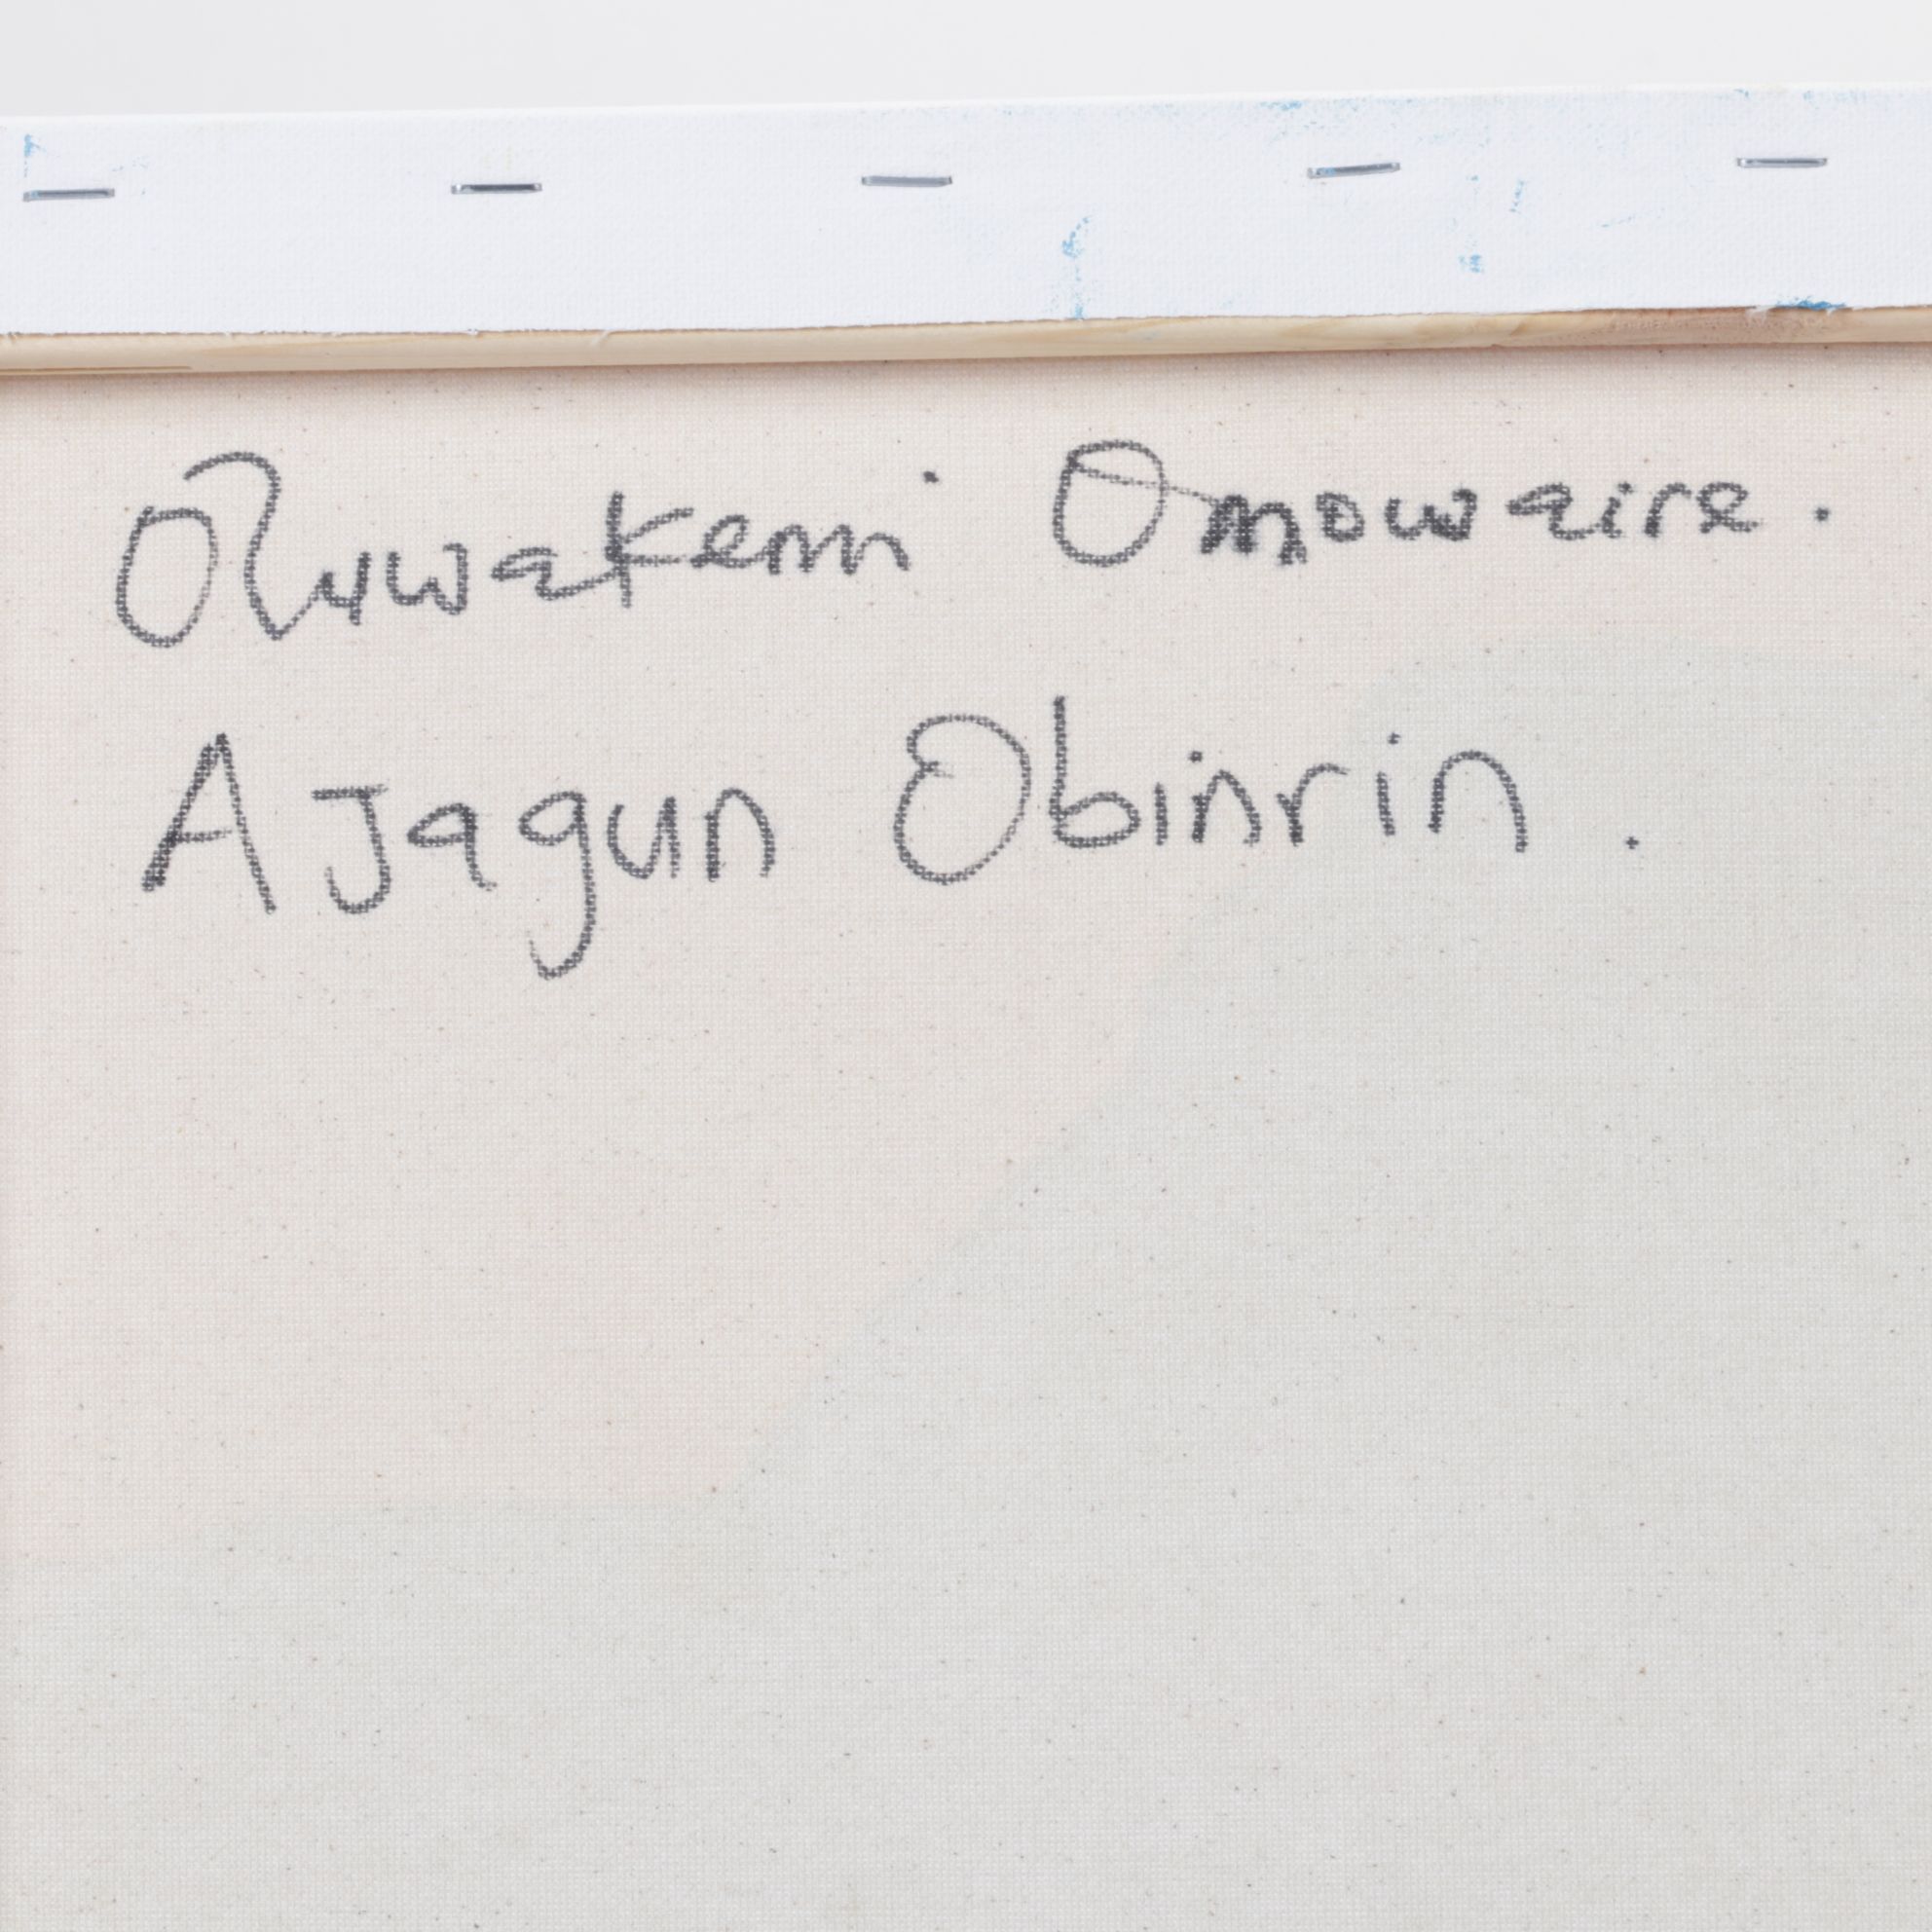 Oluwakemi Omowaire.
AJagun Obinrin.